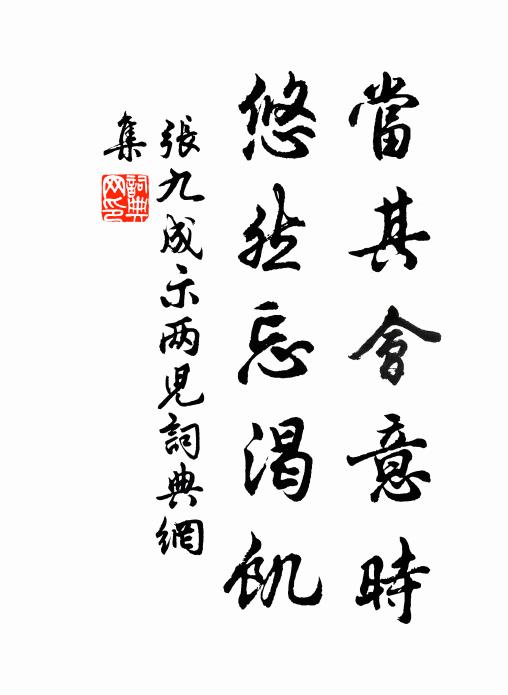 當其會意時
悠然忘渴飢
張九成示两児詞典網
集
詞典网印